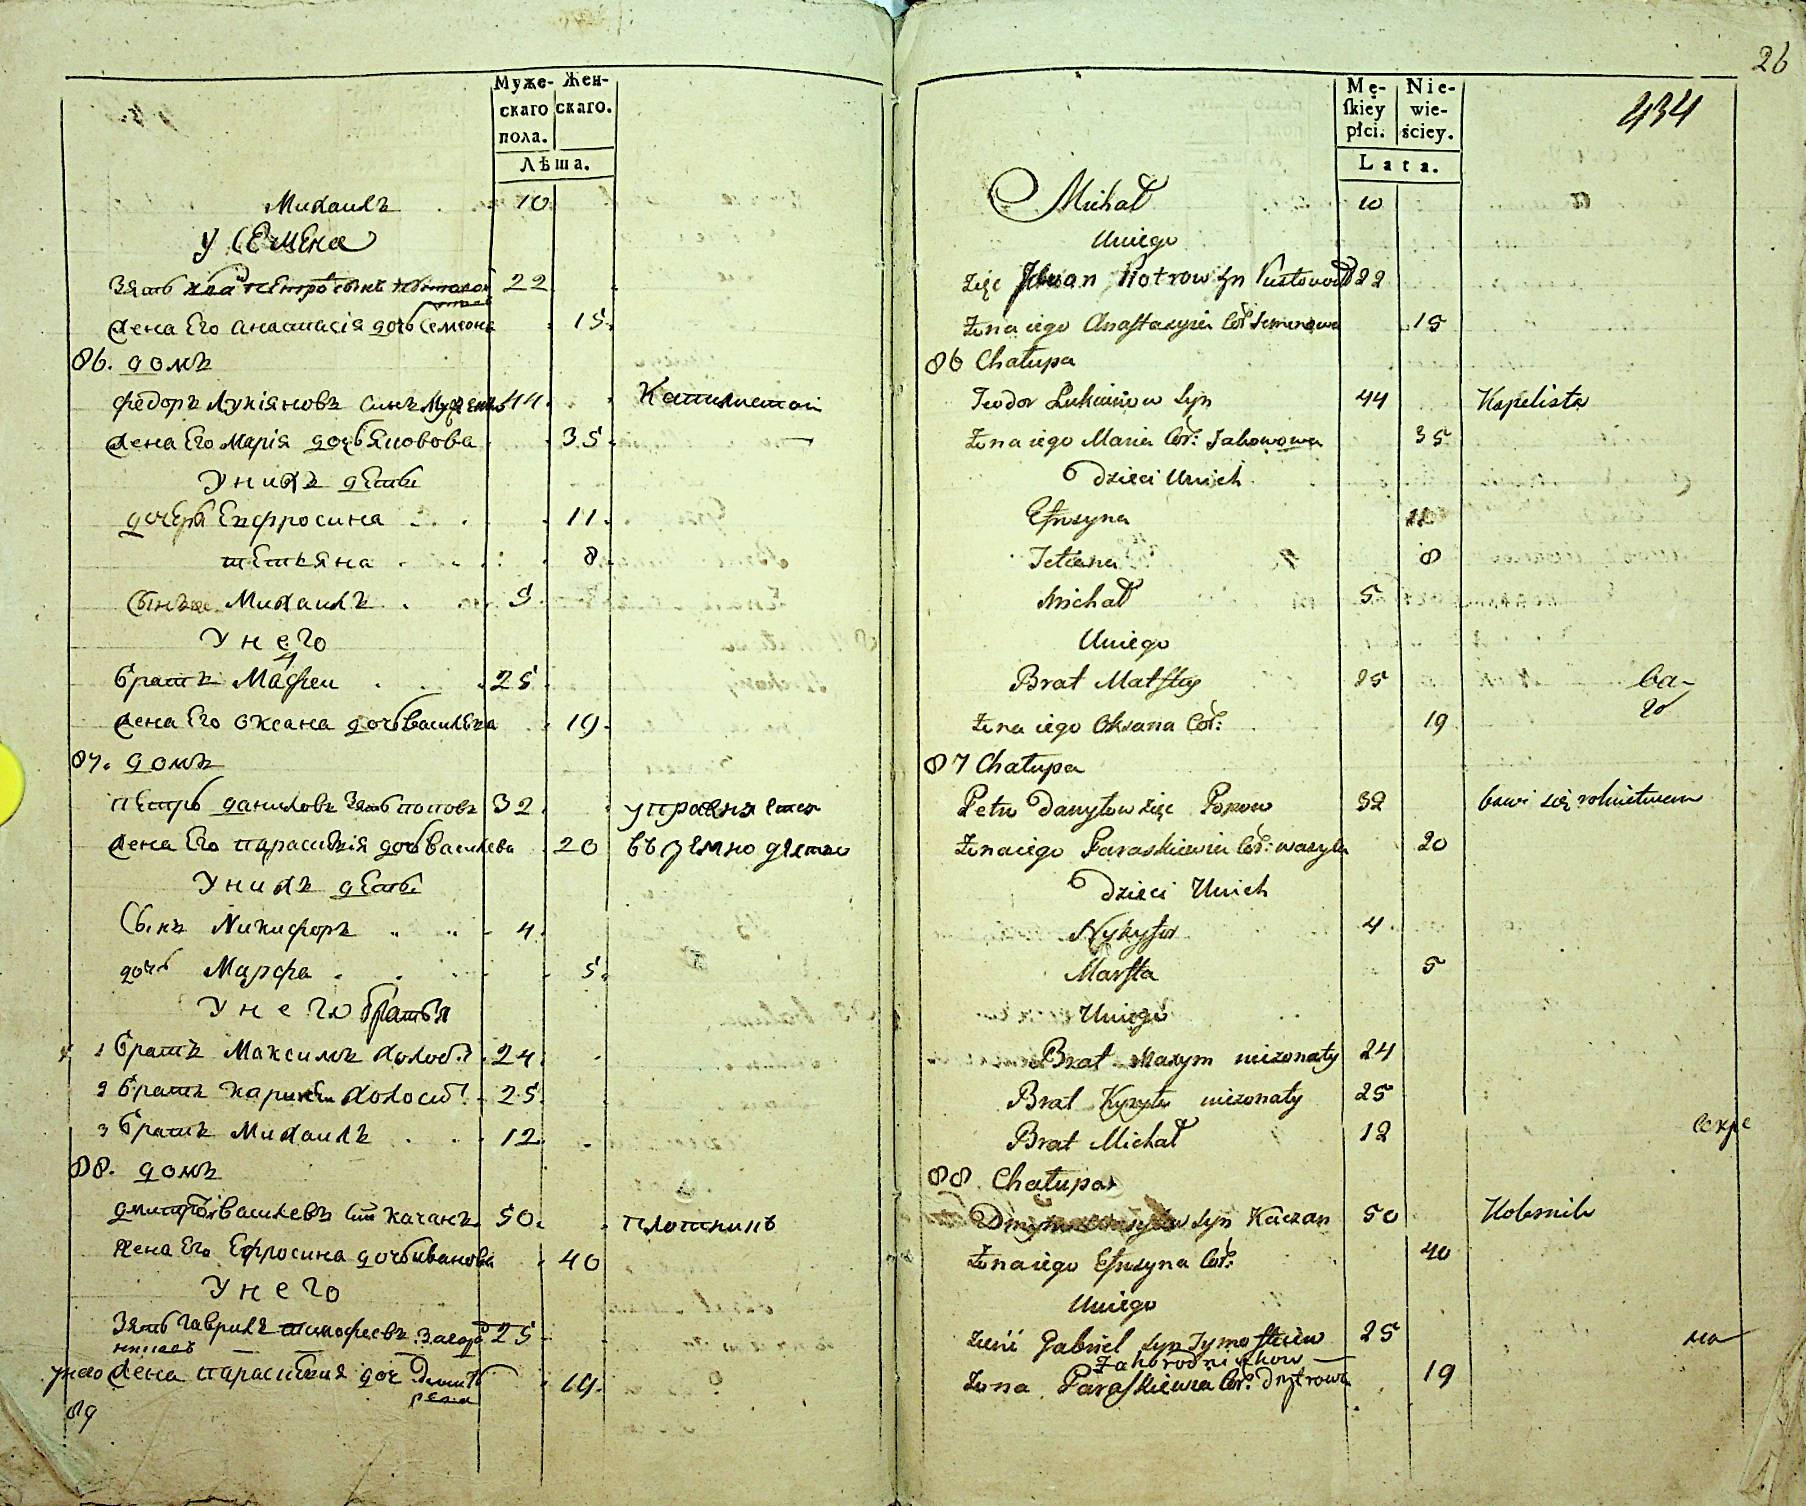 Муже- Жен-
скаго скаго.
пола.
Лѣта.
Михаилъ 10
У Семена
Зять Иванъ Петровъ сынъ 22
жена Его анастасія дочь Семеона 15
86. домъ
Федоръ Лукіяновъ Синъ 44
жена Его Марія дочь Яковова 35
У нихъ дети
дочерь Евфросина 11
тетьяна 8
Сынъ Михаилъ 5
У него
братъ Мафеи 25
жена Его Оксана дочь василева 19
87. домъ
Петръ даниловъ Зять поповъ 32 упражняется
жена Его параскивія дочь василева 20 въ
У нихъ дети
Сынъ Никифоръ 4
дочь Марфа 5
У него братья
1 братъ Максимъ холост. 24
2 братъ холост. 25
3 братъ Михаилъ 12
88. домъ
дмитро василевъ сын качанъ 50 плотникъ
жена Его Ефросина дочь иванова 40
У него
Зять гаврила тимофеевъ 25
жена параскивия доч 19
89
26
Mę- Nie-
skiey wie-
płci. ściey.
434
Lata.
Michał 10
Uniego
zięc Iwan Piotrow syn Pustowoyt 22
Żona iego Anastazyia Cór Semenowa 15
86 Chałupa
Teodor Łukianow Syn 44 Kapelista
Żona iego Maria Cór: Jakowowa 35
Dzieci Unich
Efrozyna 11
Teteana 8
Michał 5
Uniego
Brat Matfey 25
Żona iego Oksana Cór: 19
87 Chałupa
Petro Danyłow zięc Popow 32 bawi się rolnictwem
Żona iego Paraskiewia Cór: wasyla 20
Dzieci Unich
Nykyfor 4
Marfta 5
Uniego
Brat Maxym nieżonaty 24
Brat Kyryło nieżonaty 25
Brat Michał 12
88 Chałupa
Dmytro syn Kaczan 50 Kolesnik
Żona iego Efrozyna Cór: 40
Uniego
Gabriel syn Tymofteiew 25
Zahorodnikow
Żona Paraskiewia Cór: Dmytrowa 19